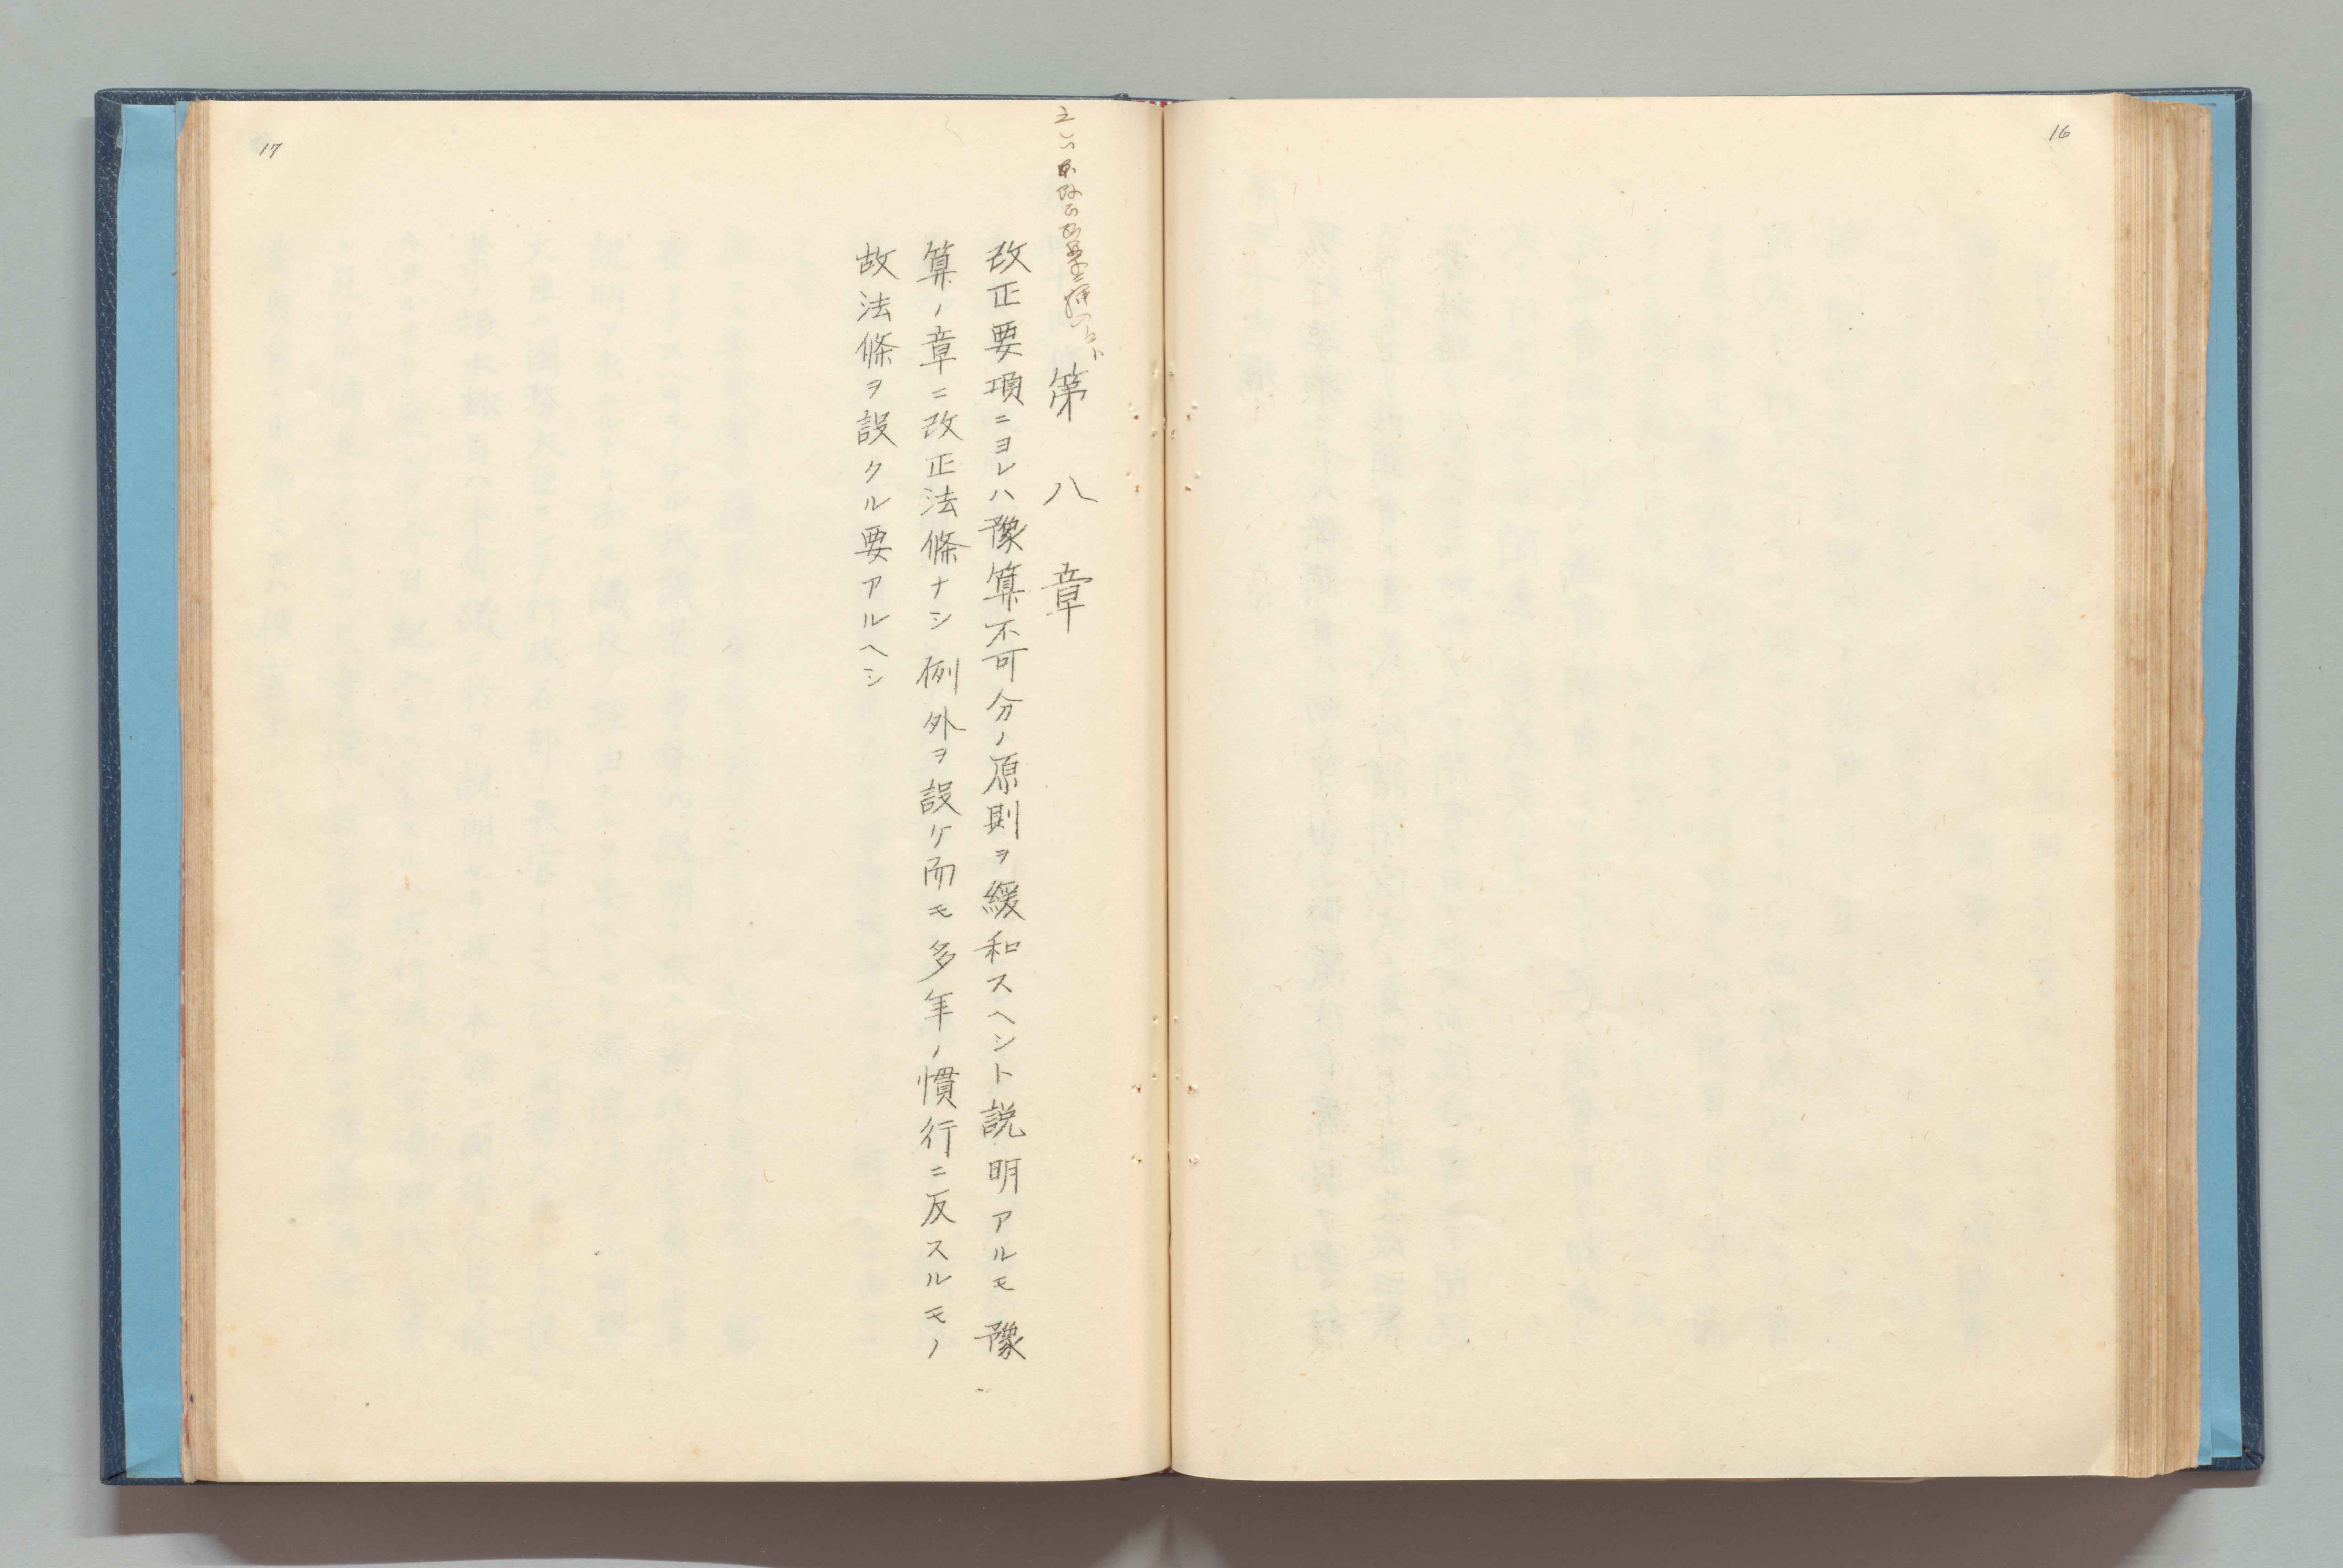 16
第八章
改正要項ニヨレハ豫算不可分ノ原則ヲ緩和スヘシト説明アルモ豫
算ノ章ニ改正法條ナシ例外ヲ設ケ而モ多年ノ慣行ニ反スルモノ
故法條ヲ設クル要アルヘシ
17